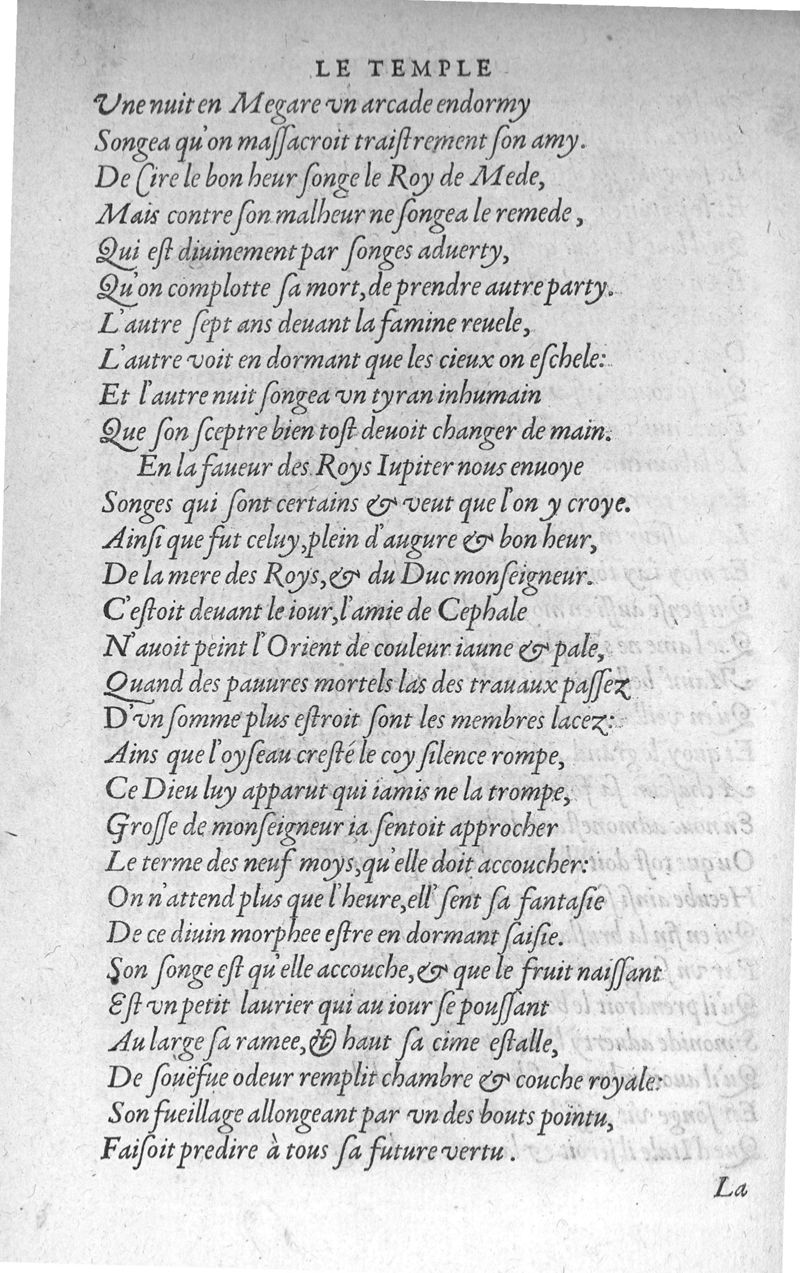 LE TEMPLE
Vne nuit en Megare vn arcade endormy
Songea qu'on maſſacroit traiſtrement ſon amy.
De Cire le bon heur ſonge le Roy de Mede,
Mais contre ſon malheur ne ſongea le remede,
Qui eſt diuinement par ſonges aduerty,
Qu'on complotte ſa mort, de prendre autre party.
L'autre ſept ans deuant la famine reuele,
L'autre voit en dormant que les cieux on eſchele:
Et l'autre nuit ſongea vn tyran inhumain
Que ſon ſceptre bien toſt deuoit changer de main.
En la faueur des Roys Iupiter nous enuoye
Songes qui ſont certains & veut que l'on y croye.
Ainſi que fut celuy, plein d'augure & bon heur,
De la mere des Roys, & du Duc monſeigneur.
C'eſtoit deuant le iour, l'amie de Cephale
N'auoit peint l'Orient de couleur iaune & pale,
Quand des pauures mortels las des trauaux paſſez
D'vn ſomme plus eſtroit ſont les membres lacez:
Ains que l'oyſeau creſté le coy ſilence rompe,
Ce Dieu luy apparut qui iamis ne la trompe,
Groſſe de monſeigneur ia ſentoit approcher
Le terme des neuf moys, qu'elle doit accoucher:
On n'attend plus que l'heure, ell' ſent ſa fantaſie
De ce diuin morphee eſtre en dormant ſaiſie.
Son ſonge eſt qu'elle accouche, & que le fruit naiſſant
Eſt vn petit laurier qui au iour ſe pouſſant
Au large ſa ramee, & haut ſa cime eſtalle,
De ſouëfue odeur remplit chambre & couche royale:
Son fueillage allongeant par vn des bouts pointu,
Faiſoit predire à tous ſa future vertu.
La